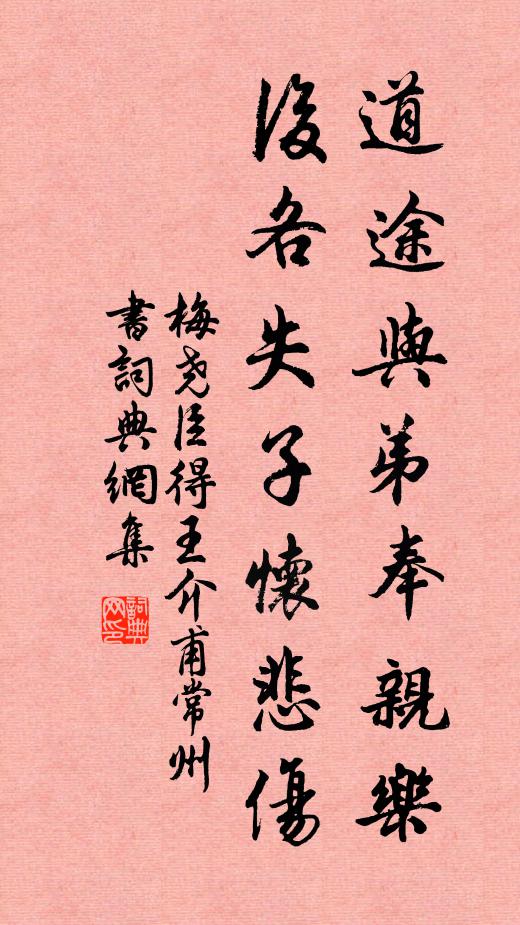 道途與弟奉親樂
後各失子懷悲傷
梅尧臣得王介甫常州
書詞典網集
詞典网印